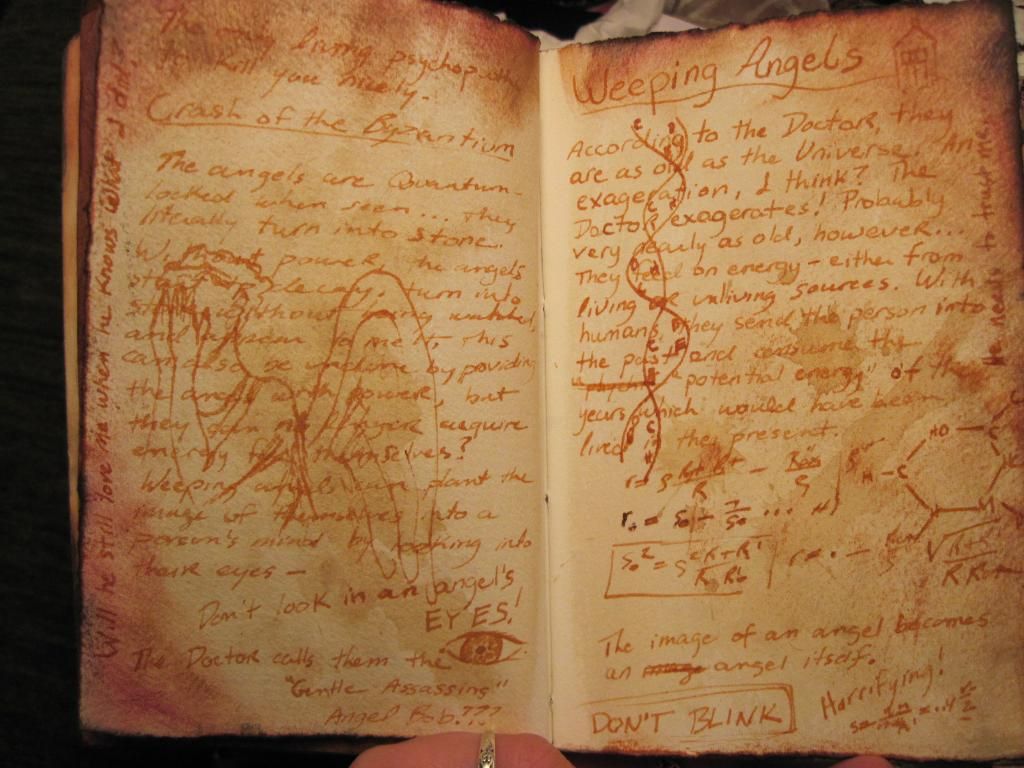 The only living psychopaths
to kill you nicely.
Crash of the Byzantium
The angels are Quantum-
locked when seen... they
literally turn into stone.
Without power, the angels
start to decay, turn into
stone without being watched,
and appear to melt, this
can also be undone by providing
the angels with power, but
they can no longer acquire
energy for themselves?
Weeping angels can plant the
image of themselves into a
person's mind by looking into
their eyes –
Don't look in an angel's
EYES!
The Doctor calls them the
"Gentle Assassins"
Angel Bob???
Will he still love me when he knows what I did.
Weeping Angels
According to the Doctor, they
are as old as the Universe. An
exageration, I think? The
Doctor exagerates! Probably
very nearly as old, however...
They feed on energy – either from
living or unliving sources. With
humans, they send the person into
the past and consume the
"potential energy" of the
years which would have been
lived in they present.
He needs to trust me.
HO
H - C
The image of an angel becomes
an angel itself.
Horrifying!
DON'T BLINK